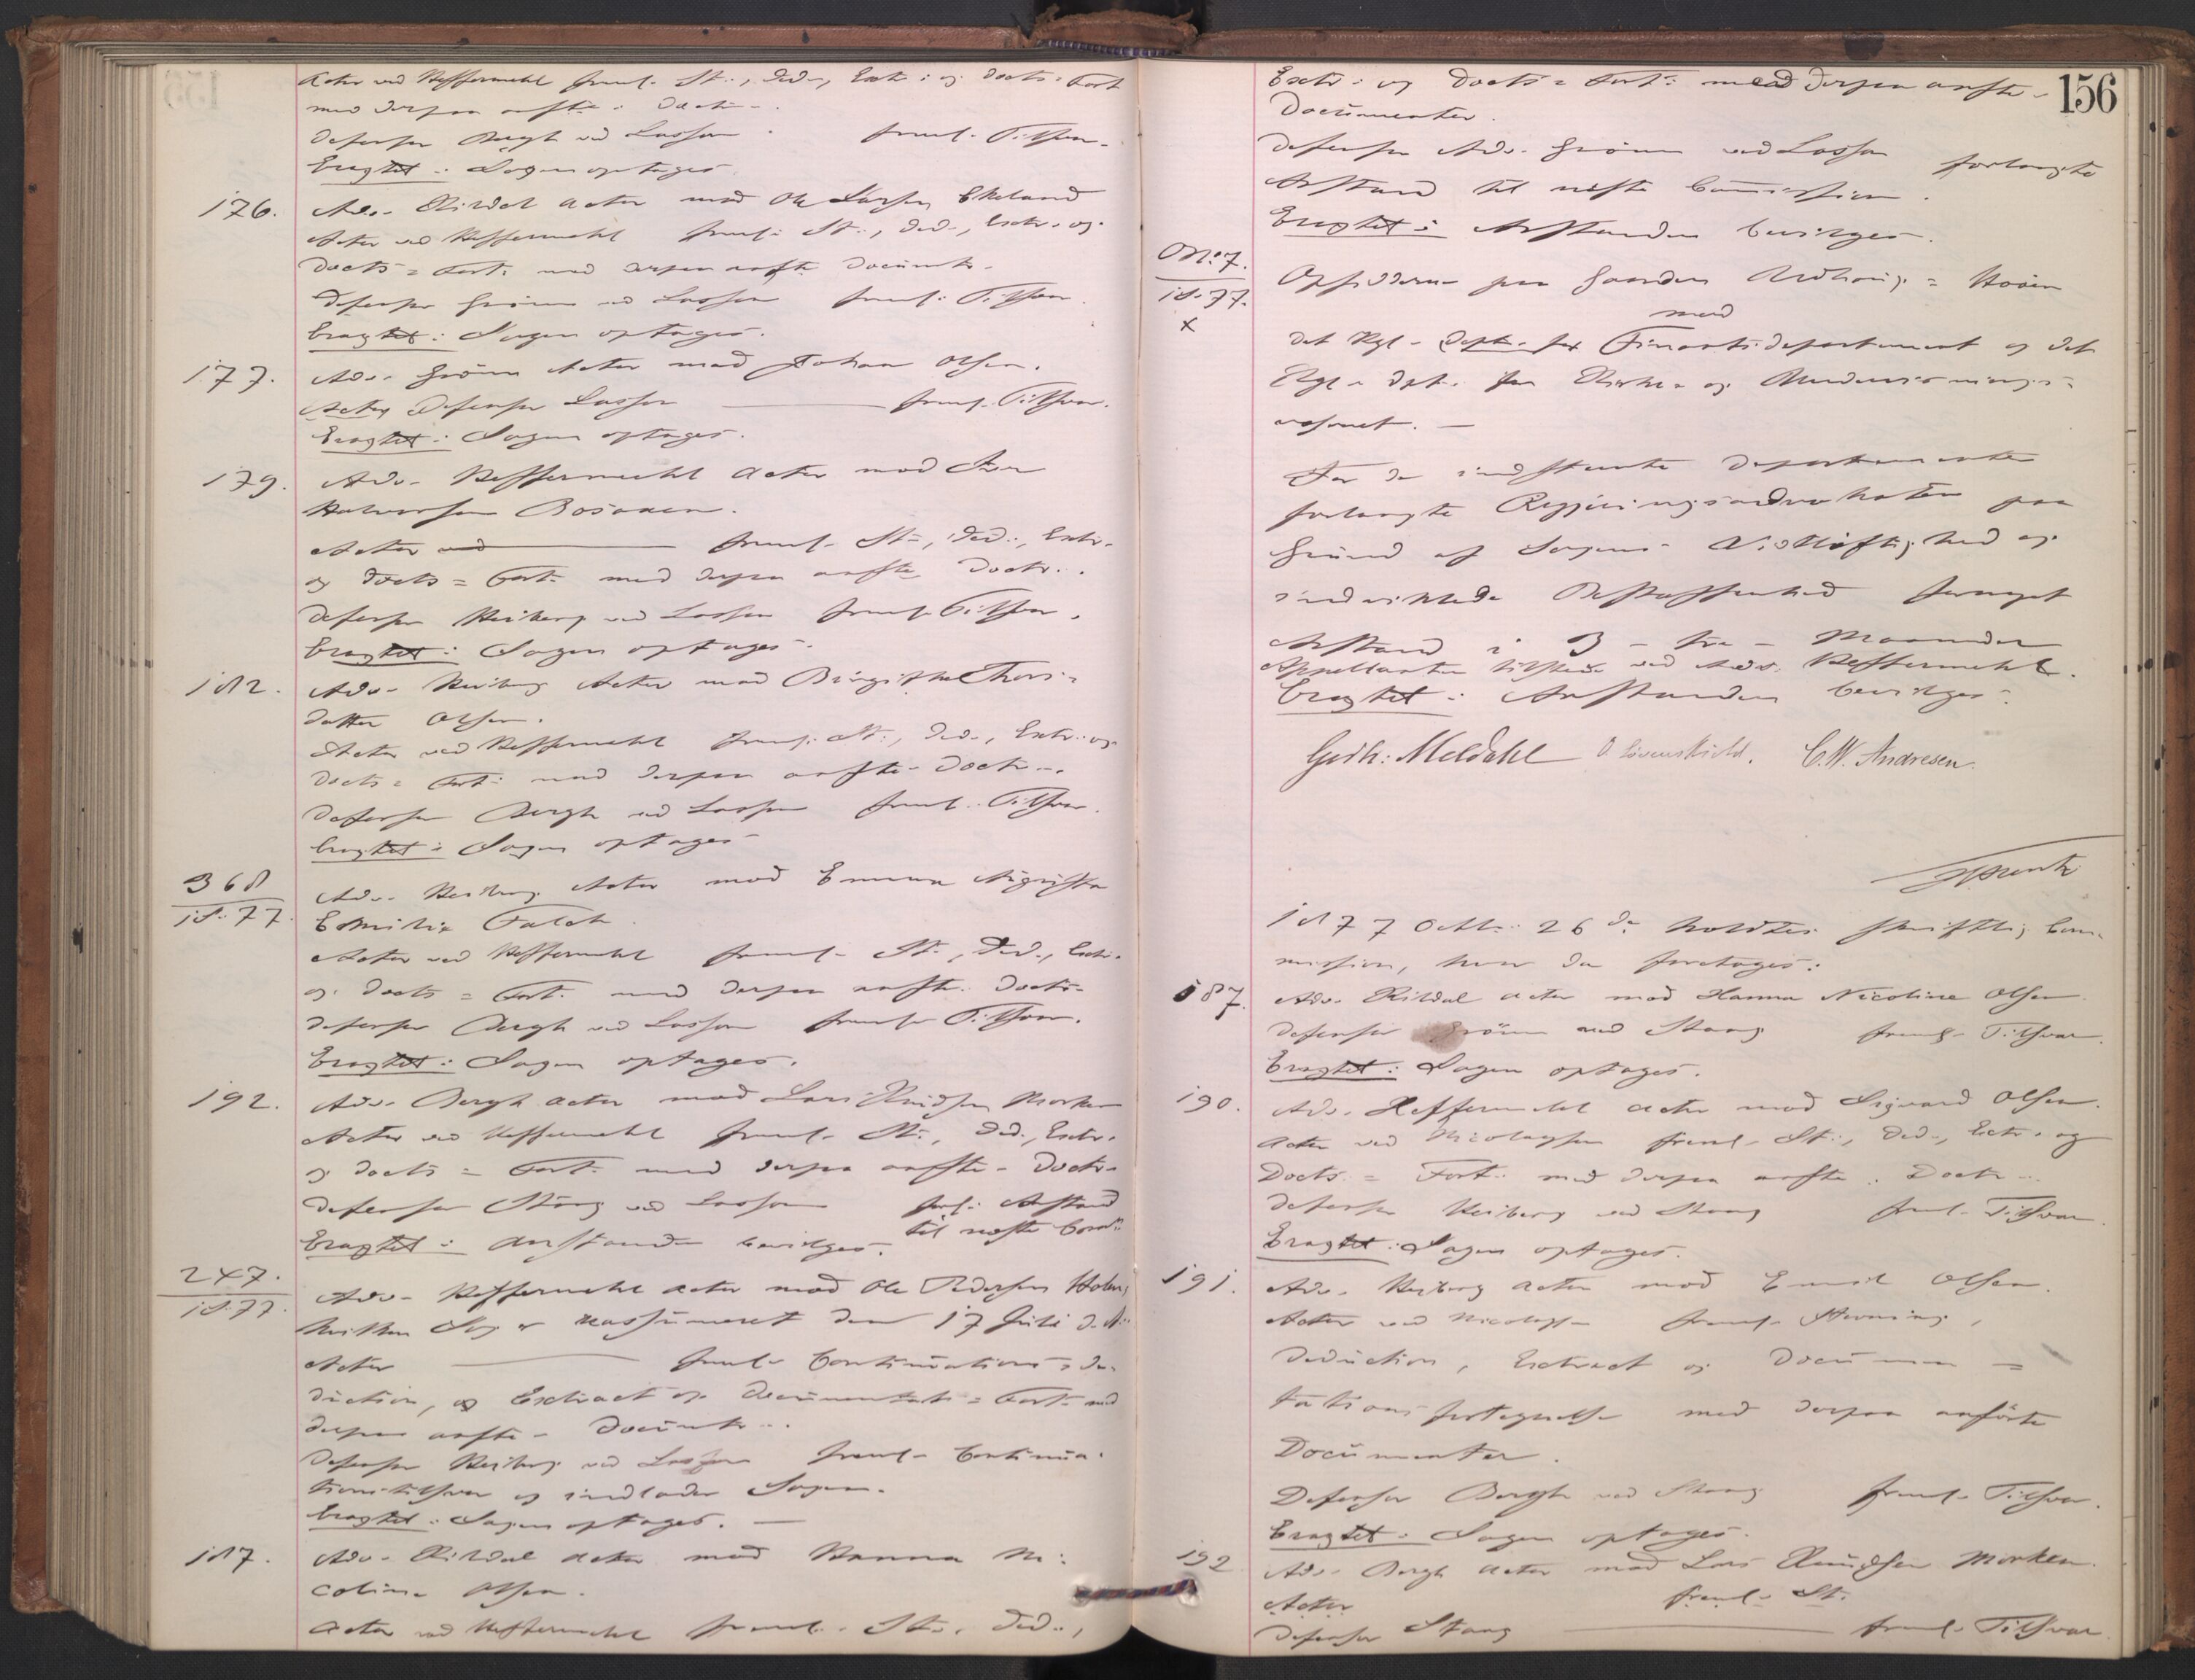 Acter ved Heffermehl freml. St:, Ded:, Extr: og Docts = Fort
med derpaa anfte. Docts.
Defensor Bergh ved Lasson freml. Tilsvar.
Eragtet: Sagen optages.
176. Adv. Rildal Actor mod Ole Larsen Ekeland
Acter ved Heffermehl freml. St:, Ded:, Extr: og
Docts = Fort: med derpaa anfte Documtr.
Defensor Grönn ved Lasson freml. Tilsvar.
Eragtet: Sagen optages.
177. Adv. Grönn Actor mod Johan Olsen.
Actor Defensor Lasson freml. Tilsvar.
Eragtet: Sagen optages.
179. Adv. Heffermehl Actor mod
Halvorsen
Actor ved freml. St:, Ded:, Extr.
og Docts = Fort. med derpaa anfte Doctr.
Defensor Heiberg ved Lasson freml. Tilsvar.
Eragtet: Sagen optages.
182. Adv. Heiberg Actor mod Birgithe Thors=
datter Olsen.
Actor ved Heffermehl freml. St:, Ded:, Extr: og
Docts = Fort: med derpaa anfte. Doctr.
Defensor Bergh ved Lasson freml. Tilsvar.
Eragtet: Sagen optages
368
18 77. Adv. Heiberg Actor mod Emma Augusta
Emilie Falch
Actor ved Heffermehl freml. St:, Ded:, Extr.
og Docts = Fort. med derpaa anfte. Docts.
Defensor Bergh ved Lasson freml. Tilsvar.
Eragtet: Sagen optages.
192. Adv. Bergh Actor mod Lars Knudsen Morken
Actor ved Heffermehl freml. St:, Ded:, Extr.
og Docts = Fort: med derpaa anfte. Docts.
Defensor Stang ved Lasson forl. Anstand
til næste Comn
Eragtet: Anstanden bevilges.
247.
18 77. Adv. Heffermehl Actor mod Ole Pedersen
hvilken Sag er reassumeret den 17 Juli d. A:
Actor freml. Continuations = De=
duction, og Extract og Documentats = Fort. med
derpaa anfte. Documtr.
Defensor Heiberg ved Lasson freml. Continua=
tionstilsvar og indlader Sagen.
Eragtet: Sagen optages.
187. Adv. Rildal Actor mod Hanna Ni=
coline Olsen.
Actor ved Heffermehl freml. St:, Ded:,
156
Extr: og Docts = Fort: med derpaa anfte.
Documenter.
Defensor Adv. Grönn ved Lasson forlangte
Anstand til næste Commission.
Eragtet: Anstanden bevilges.
No 7.
18 77.
x
Opsidderne paa Gaarden =
mod
det Kgl. Dept. for Finantsdepartement og det
Kgl. Dpt. for Kirke= og Underviisnings=
væsenet.
For de indstevnte Departementer
forlangte Regjeringsadvokaten paa
Grund af Sagens Vidtløftighed og
indviklede Beskaffenhed fornyet
Anstand i 3 - tre - Maaneder
Appellanten tilstede ved Adv. Heffermehl.
Eragtet: Anstanden bevilges.
Gerh: Meldahl O Løvenskiold. C.W. Andresen.
1877 Octbr. 26de holdtes skriftlig Com=
mission, hvor da foretages:
187. Adv. Rildal Actor mod Hanna Nicoline Olsen
Defensor Grönn ved Stang freml. Tilsvar.
Eragtet: Sagen optages.
190. Adv. Heffermehl Actor mod Sigvard Olsen.
Actor ved Nicolaysen freml. St:, Ded:, Extr: og
Docts = Fort: med derpaa anfte. Doctr.
Defensor Heiberg ved Stang freml. Tilsvar.
Eragtet: Sagen optages.
191. Adv. Heiberg Actor mod Emil Olsen.
Actor ved Nicolaysen freml. Stevning,
Deduction, Extract og Documen=
tationsfortegnelse med derpaa anförte
Documenter.
Defensor Bergh ved Stang freml. Tilsvar.
Eragtet: Sagen optages.
192 Adv. Bergh Actor mod Lars Knudsen Morken.
Actor freml. St.
Defensor Stang freml. Tilsvar.